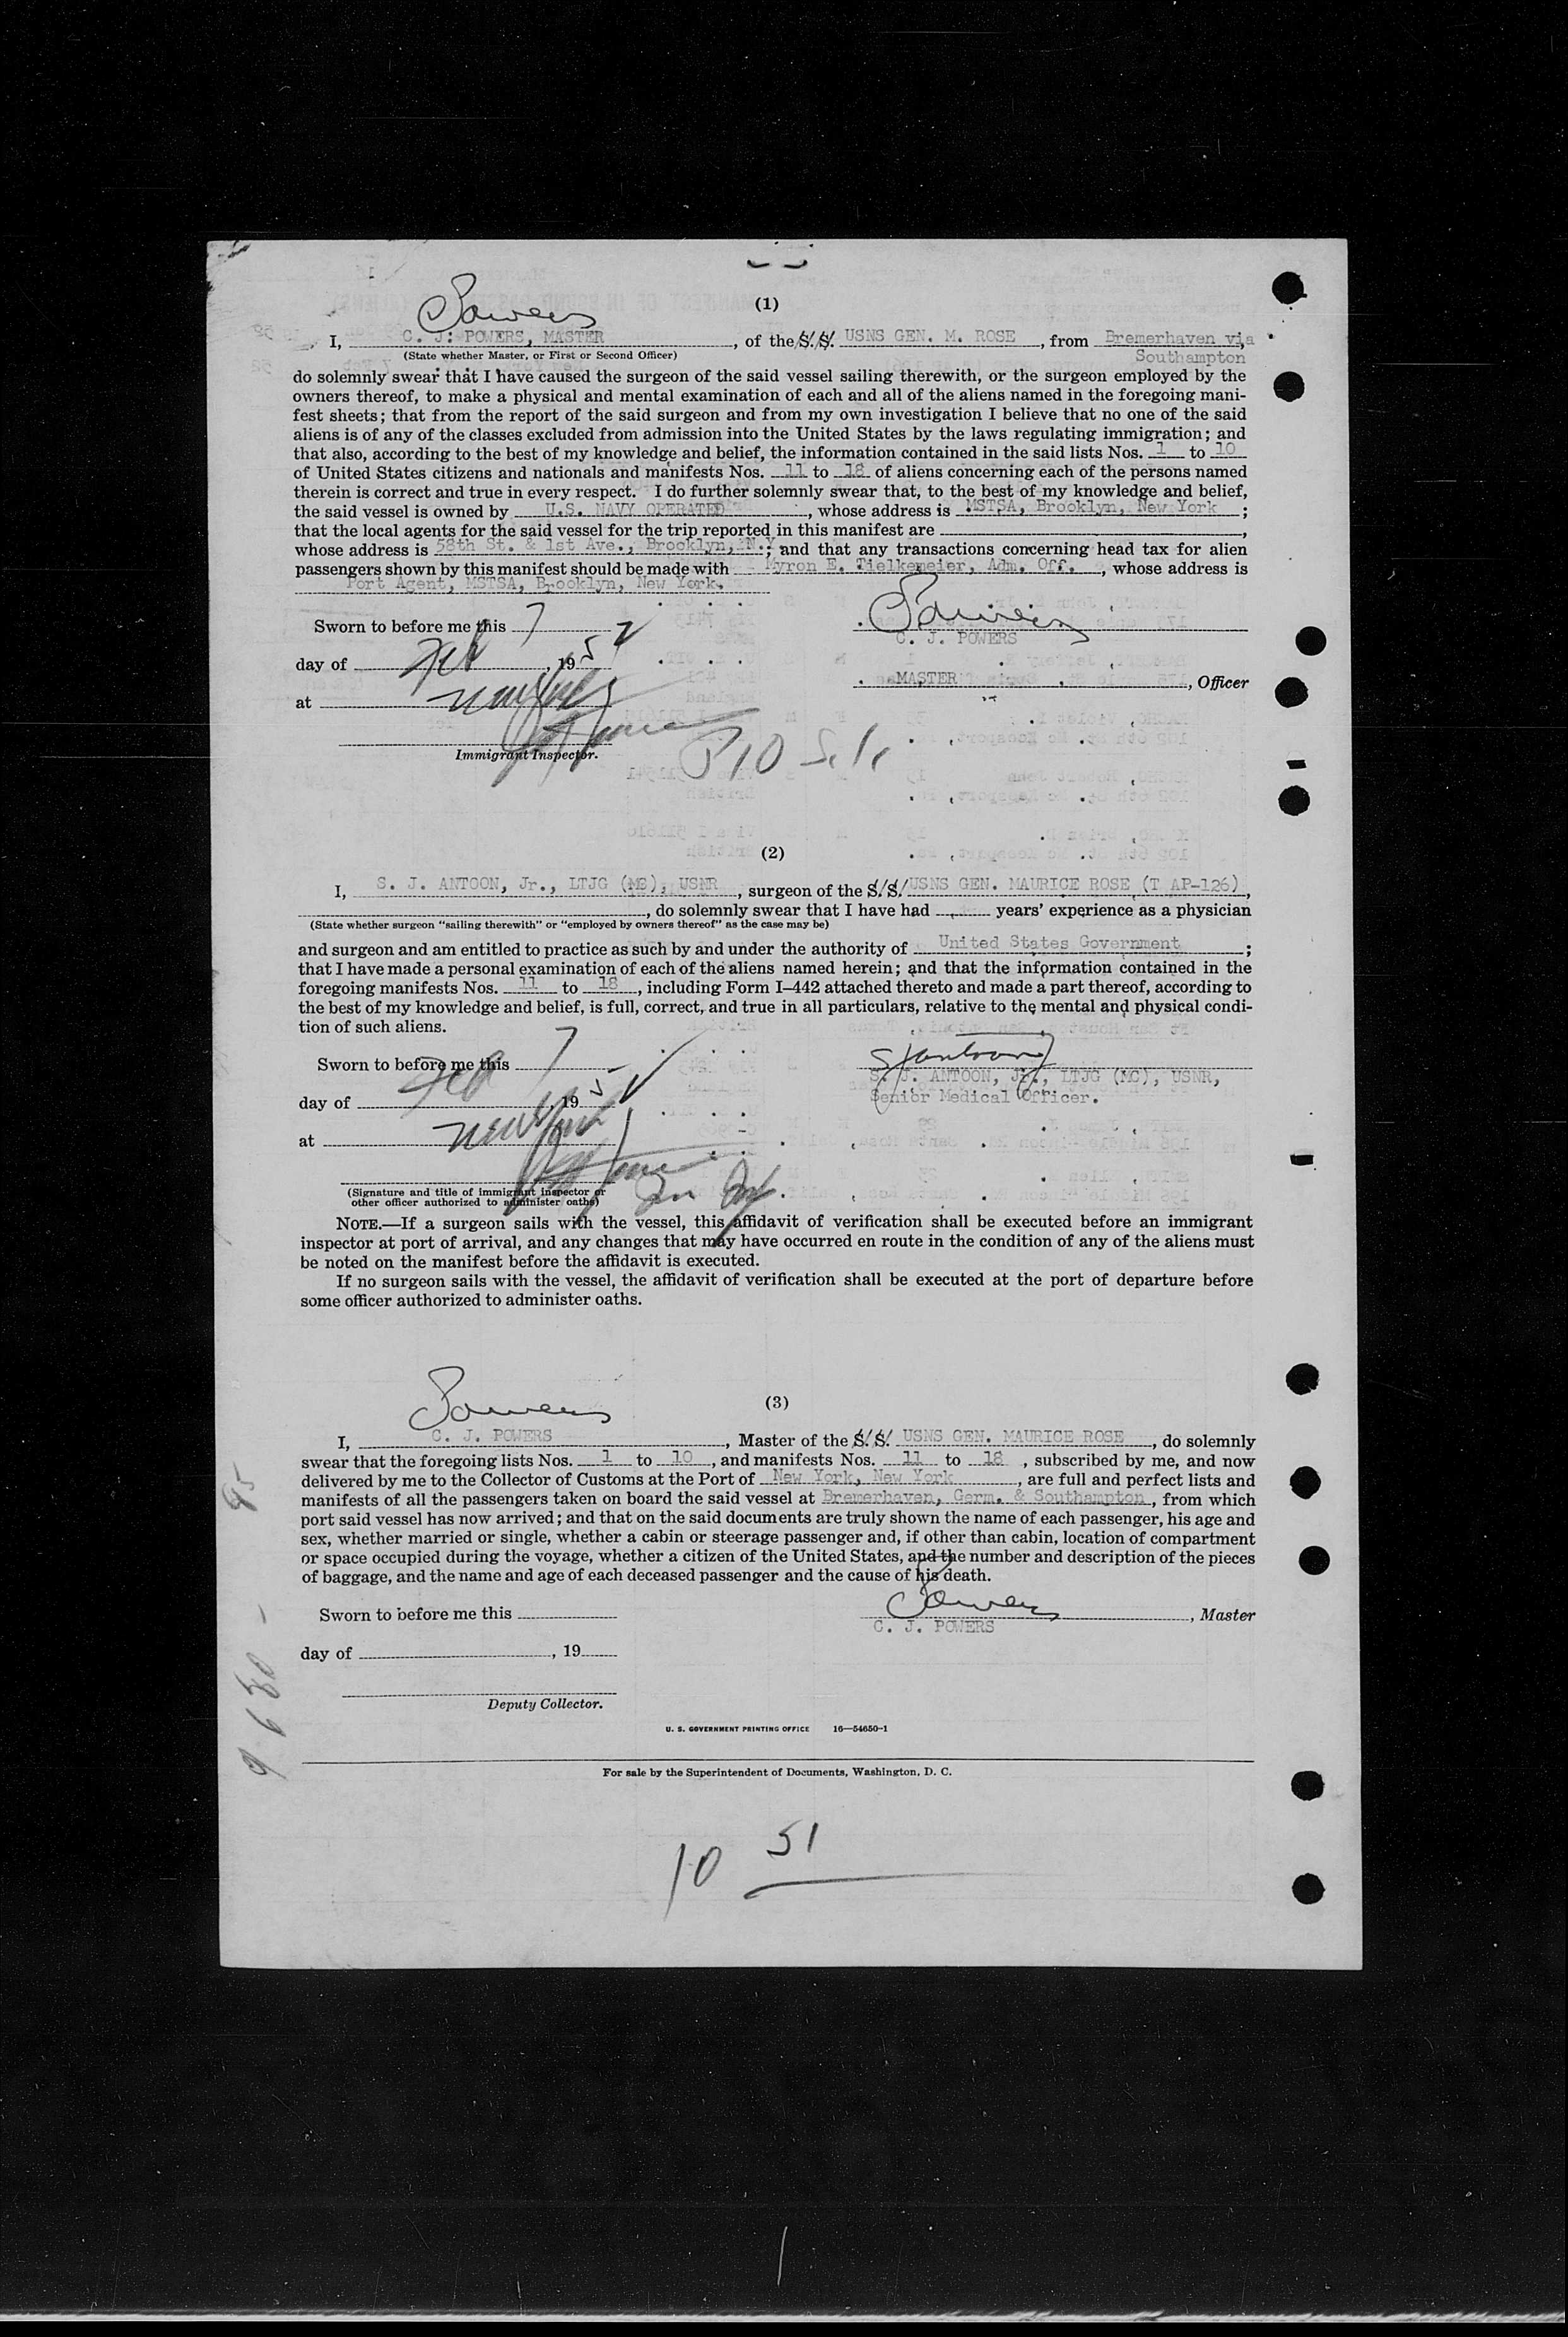 (1)
Powers
I, C. J. POWERS, MASTER, of the S. S. USNS GEN. M. ROSE, from Bremerhaven via
(State whether Master, or First or Second Officer) Southampton
do solemnly swear that I have caused the surgeon of the said vessel sailing therewith, or the surgeon employed by the
owners thereof, to make a physical and mental examination of each and all of the aliens named in the foregoing mani-
fest sheets; that from the report of the said surgeon and from my own investigation I believe that no one of the said
aliens is of any of the classes excluded from admission into the United States by the laws regulating immigration; and
that also, according to the best of my knowledge and belief, the information contained in the said lists Nos. 1 to 10
of United States citizens and nationals and manifests Nos. 11 to 18 of aliens concerning each of the persons named
therein is correct and true in every respect. I do further solemnly swear that, to the best of my knowledge and belief,
the said vessel is owned by U.S. NAVY OPERATED, whose address is MSTSA, Brooklyn, New York;
that the local agents for the said vessel for the trip reported in this manifest are ,
whose address is 58th St. & 1st Ave., Brooklyn, N.Y; and that any transactions concerning head tax for alien
passengers shown by this manifest should be made with Myron E. Tielkemeier, Adm. Off., whose address is
Port Agent, MSTSA, Brooklyn, New York.
Sworn to before me this 7 Powers
C. J. POWERS
day of Feb, 1952
MASTER, Officer
at New York
Immigrant Inspector.
(2)
I, S. J. ANTOON, Jr., LTJG (MC), USNR, surgeon of the S. S. USNS GEN. MAURICE ROSE (T AP-126),
, do solemnly swear that I have had years' experience as a physician
(State whether surgeon "sailing therewith" or "employed by owners thereof" as the case may be)
and surgeon and am entitled to practice as such by and under the authority of United States Government;
that I have made a personal examination of each of the aliens named herein; and that the information contained in the
foregoing manifests Nos. 11 to 18, including Form I–442 attached thereto and made a part thereof, according to
the best of my knowledge and belief, is full, correct, and true in all particulars, relative to the mental and physical condi-
tion of such aliens.
Sworn to before me this 7 SJAntoon
S. J. ANTOON, Jr., LTJG (MC), USNR,
Senior Medical Officer.
day of Feb, 195
at New York
(Signature and title of immigrant inspector or
other officer authorized to administer oaths)
NOTE.—If a surgeon sails with the vessel, this affidavit of verification shall be executed before an immigrant
inspector at port of arrival, and any changes that may have occurred en route in the condition of any of the aliens must
be noted on the manifest before the affidavit is executed.
If no surgeon sails with the vessel, the affidavit of verification shall be executed at the port of departure before
some officer authorized to administer oaths.
(3)
Powers
I, C. J. POWERS, Master of the S. S. USNS GEN. MAURICE ROSE, do solemnly
swear that the foregoing lists Nos. 1 to 10, and manifests Nos. 11 to 18, subscribed by me, and now
delivered by me to the Collector of Customs at the Port of New York, New York, are full and perfect lists and
manifests of all the passengers taken on board the said vessel at Bremerhaven, Germ. & Southampton, from which
port said vessel has now arrived; and that on the said documents are truly shown the name of each passenger, his age and
sex, whether married or single, whether a cabin or steerage passenger and, if other than cabin, location of compartment
or space occupied during the voyage, whether a citizen of the United States, and the number and description of the pieces
of baggage, and the name and age of each deceased passenger and the cause of his death.
Sworn to before me this Powers, Master
C. J. POWERS
day of , 19
Deputy Collector.
U. S. GOVERNMENT PRINTING OFFICE 16—54650-1
For sale by the Superintendent of Documents, Washington, D. C.
10 51